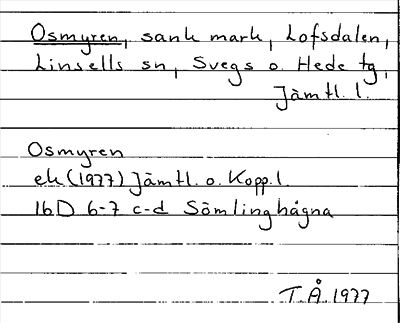 Osmyren, sank mark, Lofsdalen,
Linsells sn, Svegs o. Hede tg,
Jämtl. l.
Osmyren
ek (1977) Jämtl. o. Kopp. l.
16D 6-7 c-d Sömlinghågna
T. Å. 1977